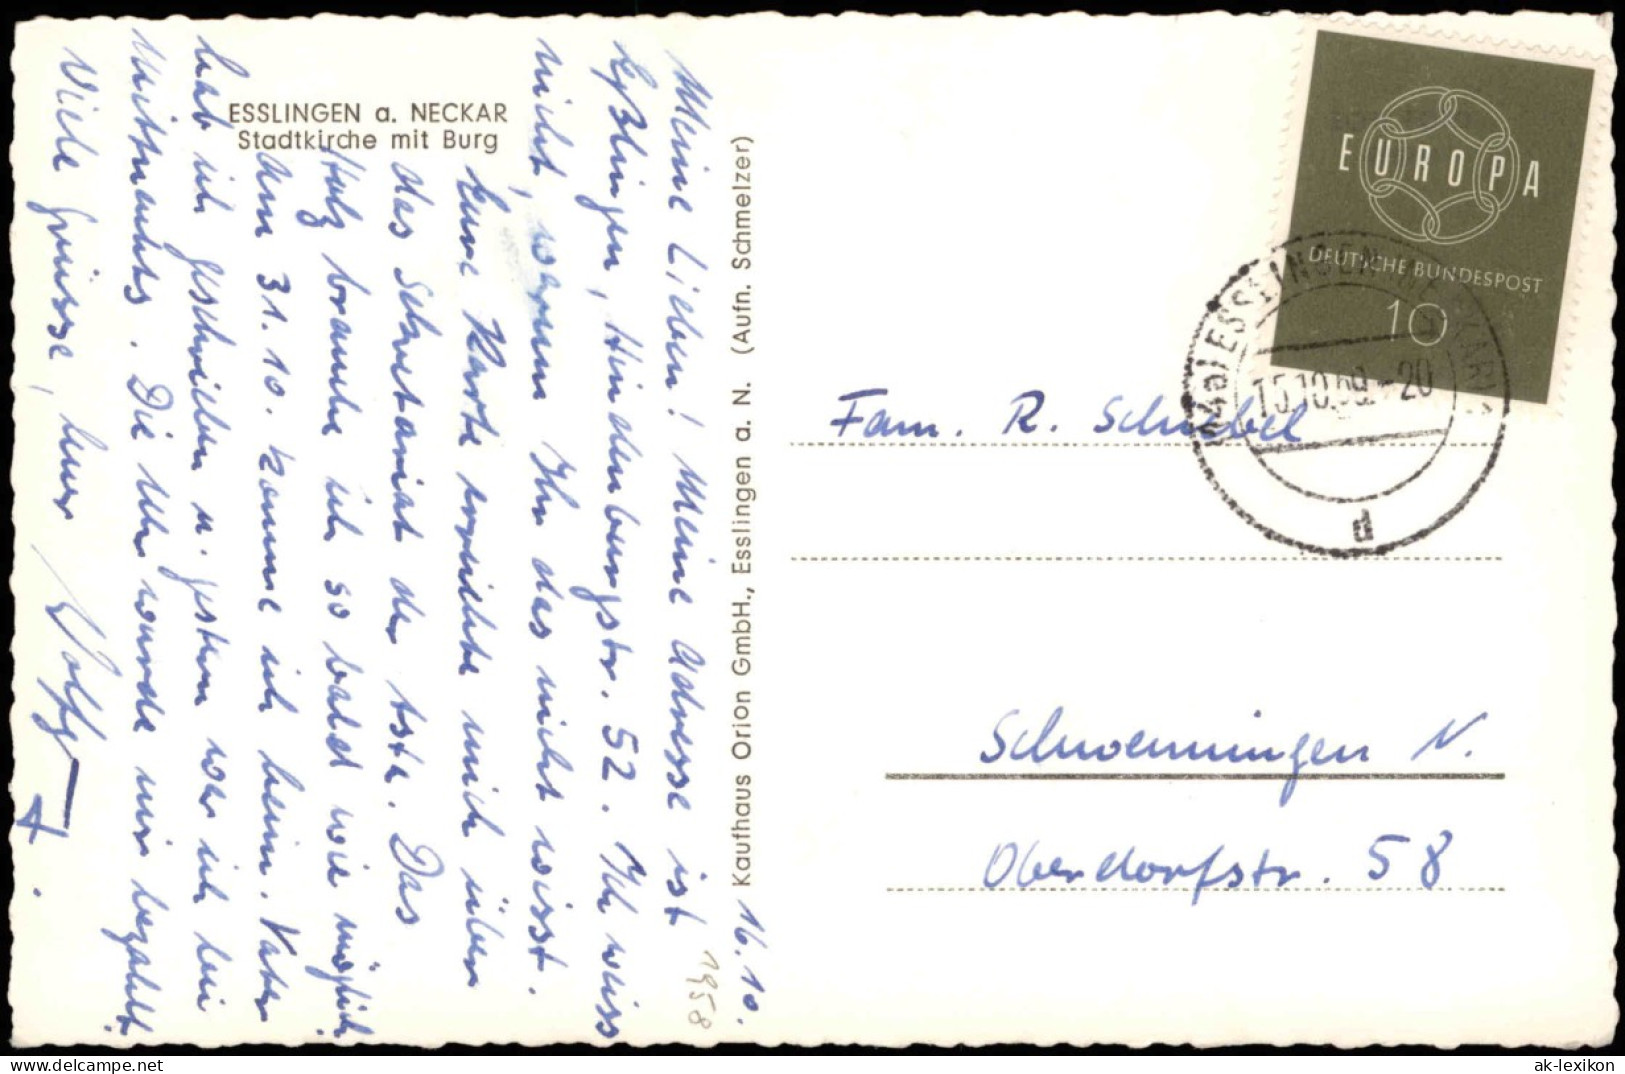 ESSLINGEN a. NECKAR
Stadtkirche mit Burg
16.10.
1958
Meine Lieben! Meine Adresse ist
Eßlingen, Hindenburgstr. 52. Ich weiss
nicht, warum Ihr das nicht wisst.
Eure Karte erreichte mich über
das Sekretariat der
Das
Holz brauche ich so bald wie möglich.
Am 31.10. komme ich heim. Vater
hab ich geschrieben u. gestern war ich bei
Die Uhr wurde mir bezahlt.
Viele Grüsse, Euer
Kaufhaus Orion GmbH., Esslingen a. N. (Aufn. Schmelzer)
EUROPA
DEUTSCHE BUNDESPOST
10
(14a) ESSLINGEN (NECKAR)
15.10.59.-20
d
Fam. R. Schiebel
Schwenningen N.
Oberdorfstr. 58
delcampe.net
ak-lexikon